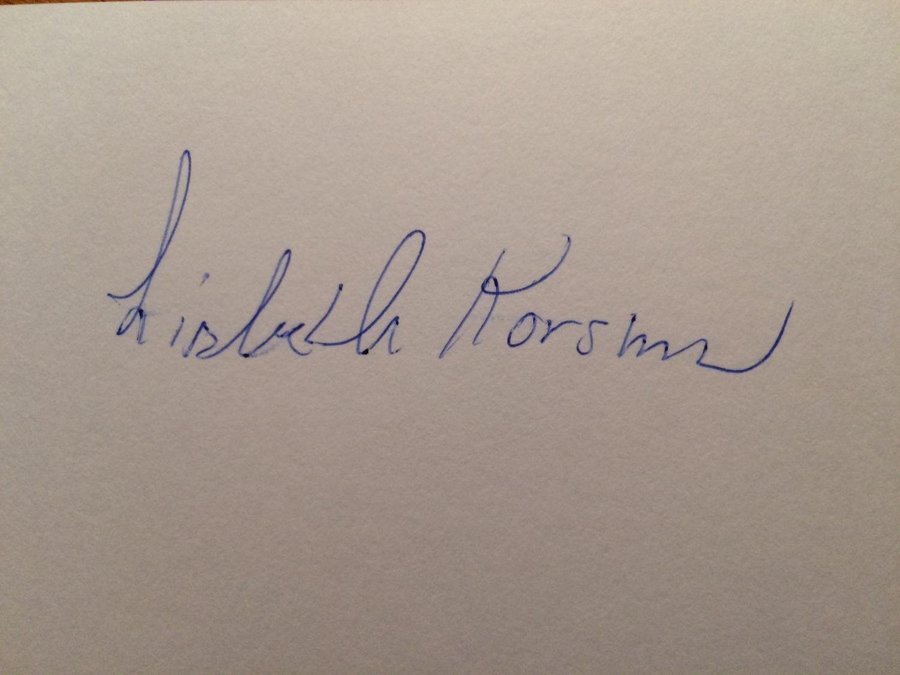 Lisbeth Korsmo